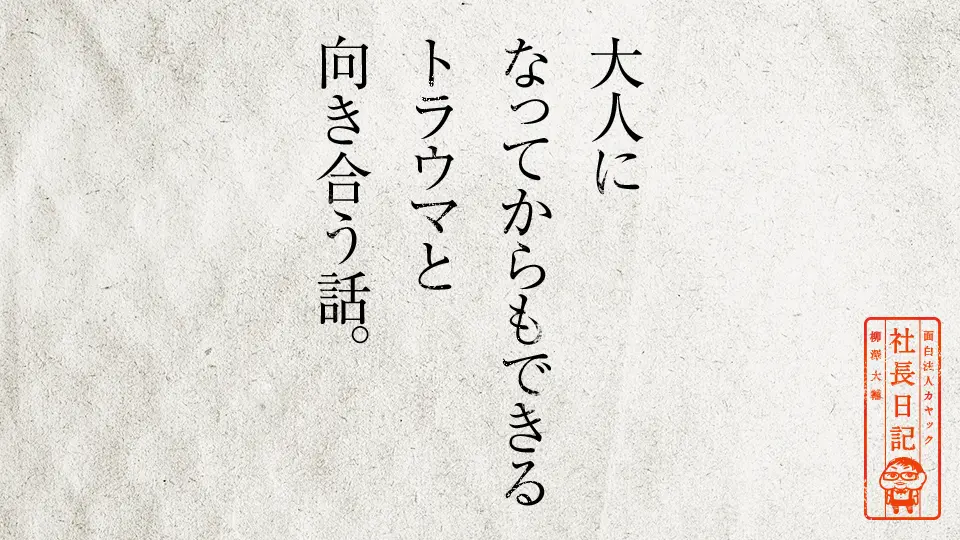 大人に
なってからもできる
トラウマと
向き合う話。
面白法人カヤック
社長日記
柳澤大輔